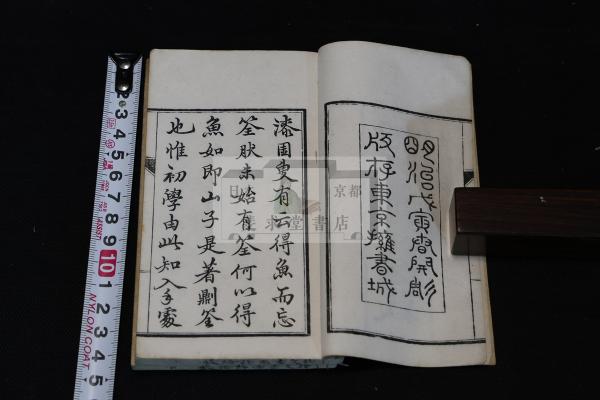 明治戊寅春開彫
版存東京擁書城
漆園叟有云得魚而忘
筌肰未始有筌何以得
魚如即山子是著則筌
也惟初學由此知入手處
京都
求堂書店
2 3 4 5 6 7 8 9 10 1 2 3 4 5
NYLON COAT